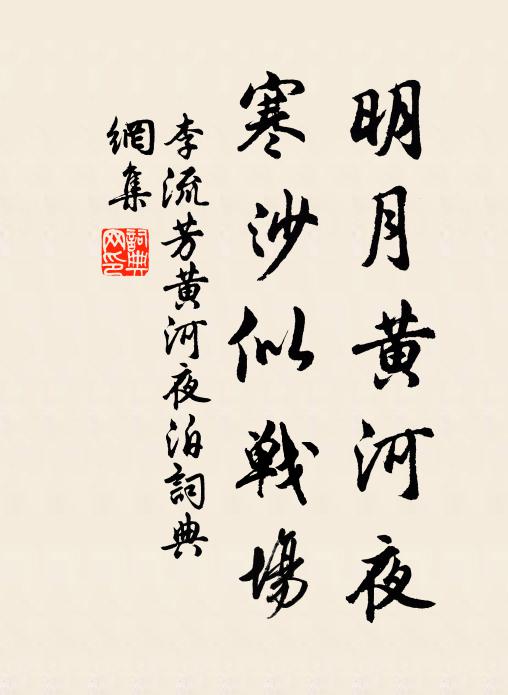 明月黄河夜
寒沙似戰場
李流芳黄河夜泊詞典
網集
詞典網印